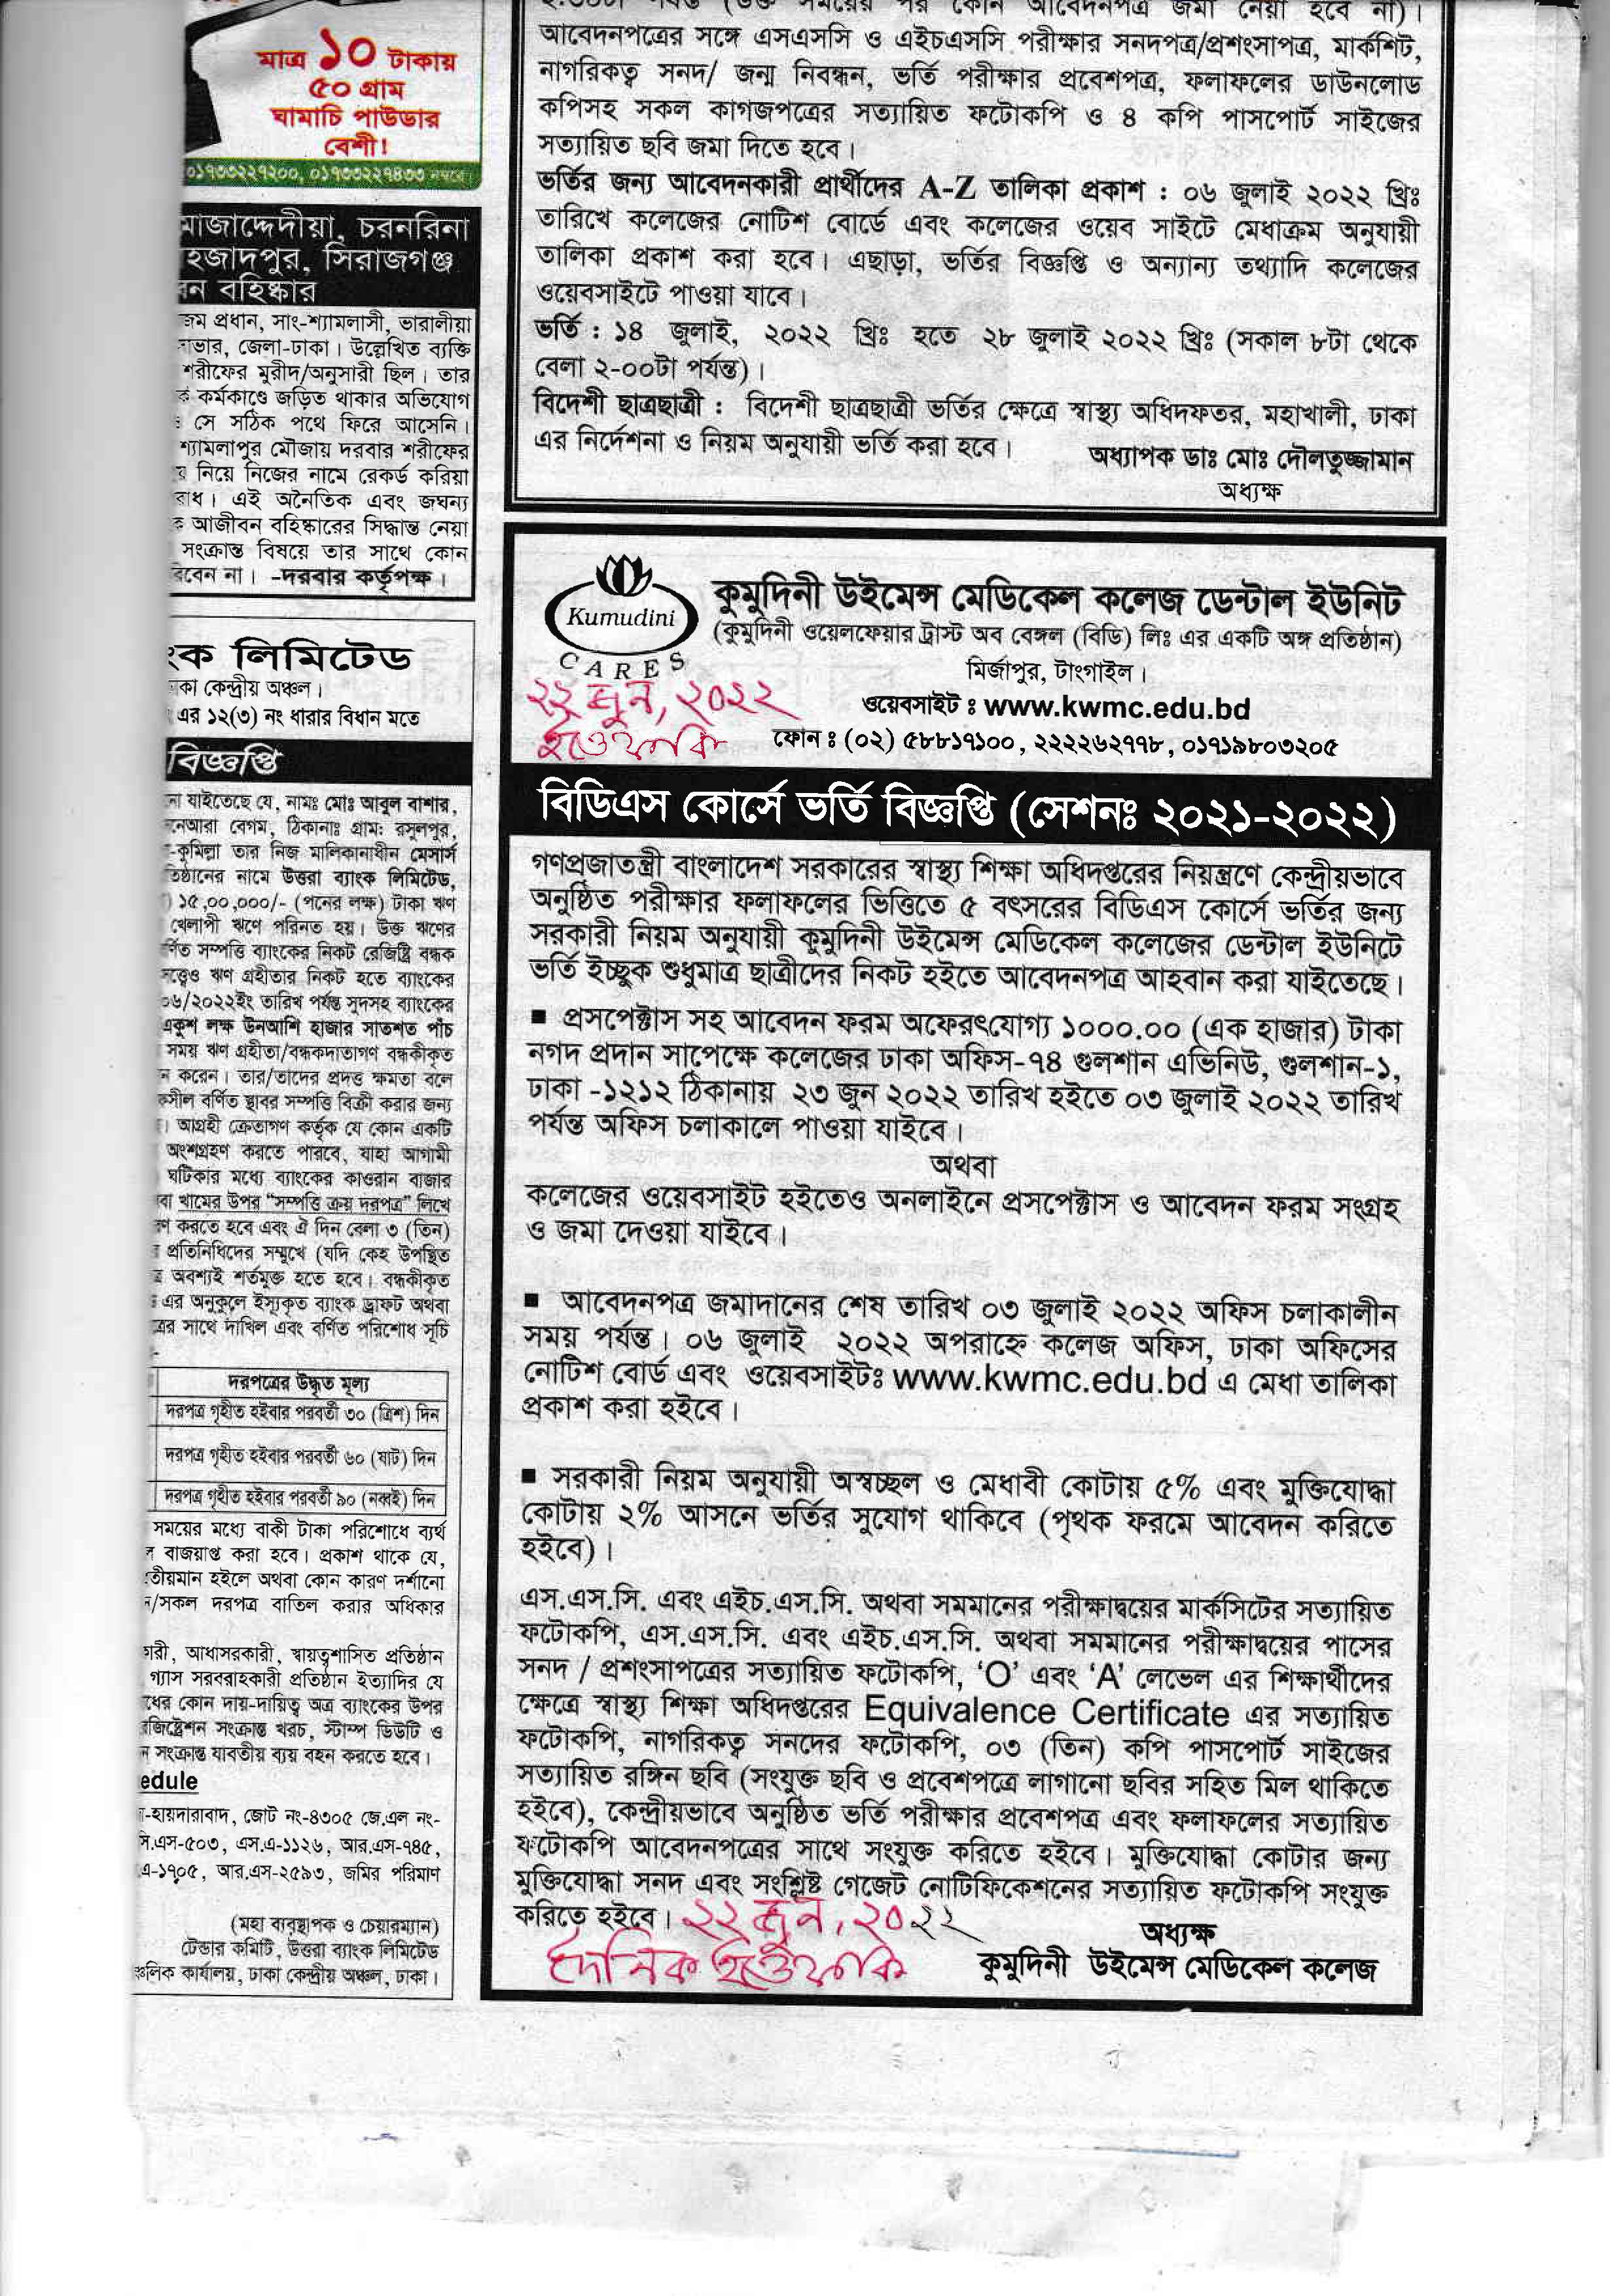 মাত্র ১০ টাকায়
৫০ গ্রাম
ঘামাচি পাউডার
বেশী!
০১৭৩৩২২৭২০০, ০১৭৩৩২২৭৪৩৩ নম্বরে
মোজাদ্দেদীয়া, চরনরিনা
হজাদপুর, সিরাজগঞ্জ
বন বহিষ্কার
জম প্রধান, সাং-শ্যামলাসী, ভারালীয়া
নাভার, জেলা-ঢাকা। উল্লেখিত ব্যক্তি
শরীফের মুরীদ/অনুসারী ছিল। তার
ক কর্মকাণ্ডে জড়িত থাকার অভিযোগ
ও সে সঠিক পথে ফিরে আসেনি।
শ্যামলাপুর মৌজায় দরবার শরীফের
য় নিয়ে নিজের নামে রেকর্ড করিয়া
রাধ। এই অনৈতিক এবং জঘন্য
ক আজীবন বহিষ্কারের সিদ্ধান্ত নেয়া
সংক্রান্ত বিষয়ে তার সাথে কোন
রবেন না। -দরবার কর্তৃপক্ষ।
ংক লিমিটেড
কা কেন্দ্রীয় অঞ্চল।
এর ১২(৩) নং ধারার বিধান মতে
বিজ্ঞপ্তি
না যাইতেছে যে, নামঃ মোঃ আবুল বাশার,
নেআরা বেগম, ঠিকানাঃ গ্রাম: রসুলপুর,
-কুমিল্লা তার নিজ মালিকানাধীন মেসার্স
তিষ্ঠানের নামে উত্তরা ব্যাংক লিমিটেড,
) ১৫,০০,০০০/- (পনের লক্ষ) টাকা ঋণ
খেলাপী ঋণে পরিনত হয়। উক্ত ঋণের
র্ণিত সম্পত্তি ব্যাংকের নিকট রেজিষ্ট্রি বন্ধক
সত্ত্বেও ঋণ গ্রহীতার নিকট হতে ব্যাংকের
০৬/২০২২ইং তারিখ পর্যন্ত সুদসহ ব্যাংকের
একুশ লক্ষ উনআশি হাজার সাতশত পাঁচ
সময় ঋণ গ্রহীতা/বন্ধকদাতাগণ বন্ধকীকৃত
ন করেন। তার/তাদের প্রদত্ত ক্ষমতা বলে
ফসীল বর্ণিত স্থাবর সম্পত্তি বিক্রী করার জন্য
। আগ্রহী ক্রেতাগণ কর্তৃক যে কোন একটি
অংশগ্রহণ করতে পারবে, যাহা আগামী
ঘটিকার মধ্যে ব্যাংকের কাওরান বাজার
বা খামের উপর “সম্পত্তি ক্রয় দরপত্র” লিখে
রণ করতে হবে এবং ঐ দিন বেলা ৩ (তিন)
র প্রতিনিধিদের সম্মুখে (যদি কেহ উপস্থিত
ত্র অবশ্যই শর্তমুক্ত হতে হবে। বন্ধকীকৃত
এর অনুকূলে ইস্যুকৃত ব্যাংক ড্রাফট অথবা
ত্রের সাথে দাখিল এবং বর্ণিত পরিশোধ সূচি
দরপত্রের উদ্ধৃত মূল্য
দরপত্র গৃহীত হইবার পরবর্তী ৩০ (ত্রিশ) দিন
দরপত্র গৃহীত হইবার পরবর্তী ৬০ (ষাট) দিন
দরপত্র গৃহীত হইবার পরবর্তী ৯০ (নব্বই) দিন
সময়ের মধ্যে বাকী টাকা পরিশোধে ব্যর্থ
ন বাজয়াপ্ত করা হবে। প্রকাশ থাকে যে,
তীয়মান হইলে অথবা কোন কারণ দর্শানো
ন/সকল দরপত্র বাতিল করার অধিকার
গরী, আধাসরকারী, স্বায়ত্বশাসিত প্রতিষ্ঠান
গ্যাস সরবরাহকারী প্রতিষ্ঠান ইত্যাদির যে
ধের কোন দায়-দায়িত্ব অত্র ব্যাংকের উপর
রজিষ্ট্রেশন সংক্রান্ত খরচ, স্টাম্প ডিউটি ও
ন সংক্রান্ত যাবতীয় ব্যয় বহন করতে হবে।
edule
-হায়দারাবাদ, জোট নং-৪৩০৫ জে.এল নং-
সি.এস-৫০৩, এস.এ-১১২৬, আর.এস-৭৪৫,
এ-১৭০৫, আর.এস-২৫৯৩, জমির পরিমাণ
(মহা ব্যবস্থাপক ও চেয়ারম্যান)
টেন্ডার কমিটি, উত্তরা ব্যাংক লিমিটেড
ঞ্চলিক কার্যালয়, ঢাকা কেন্দ্রীয় অঞ্চল, ঢাকা।
২.০০টা পর্যন্ত (উক্ত সময়ের পর কোন আবেদনপত্র জমা নেয়া হবে না)।
আবেদনপত্রের সঙ্গে এসএসসি ও এইচএসসি পরীক্ষার সনদপত্র/প্রশংসাপত্র, মার্কশিট,
নাগরিকত্ব সনদ/ জন্ম নিবন্ধন, ভর্তি পরীক্ষার প্রবেশপত্র, ফলাফলের ডাউনলোড
কপিসহ সকল কাগজপত্রের সত্যায়িত ফটোকপি ও ৪ কপি পাসপোর্ট সাইজের
সত্যায়িত ছবি জমা দিতে হবে।
ভর্তির জন্য আবেদনকারী প্রার্থীদের A-Z তালিকা প্রকাশ : ০৬ জুলাই ২০২২ খ্রিঃ
তারিখে কলেজের নোটিশ বোর্ডে এবং কলেজের ওয়েব সাইটে মেধাক্রম অনুযায়ী
তালিকা প্রকাশ করা হবে। এছাড়া, ভর্তির বিজ্ঞপ্তি ও অন্যান্য তথ্যাদি কলেজের
ওয়েবসাইটে পাওয়া যাবে।
ভর্তি : ১৪ জুলাই, ২০২২ খ্রিঃ হতে ২৮ জুলাই ২০২২ খ্রিঃ (সকাল ৮টা থেকে
বেলা ২-০০টা পর্যন্ত)।
বিদেশী ছাত্রছাত্রী : বিদেশী ছাত্রছাত্রী ভর্তির ক্ষেত্রে স্বাস্থ্য অধিদফতর, মহাখালী, ঢাকা
এর নির্দেশনা ও নিয়ম অনুযায়ী ভর্তি করা হবে।
অধ্যাপক ডাঃ মোঃ দৌলতুজ্জামান
অধ্যক্ষ
Kumudini
CARES
কুমুদিনী উইমেন্স মেডিকেল কলেজ ডেন্টাল ইউনিট
(কুমুদিনী ওয়েলফেয়ার ট্রাস্ট অব বেঙ্গল (বিডি) লিঃ এর একটি অঙ্গ প্রতিষ্ঠান)
মির্জাপুর, টাংগাইল।
ওয়েবসাইট ঃ www.kwmc.edu.bd
ফোন ঃ (০২) ৫৮৮১৭১০০, ২২২২৬২৭৭৮, ০১৭১৯৮০৩২০৫
২২ জুন, ২০২২
ইত্তেফাক
বিডিএস কোর্সে ভর্তি বিজ্ঞপ্তি (সেশনঃ ২০২১-২০২২)
গণপ্রজাতন্ত্রী বাংলাদেশ সরকারের স্বাস্থ্য শিক্ষা অধিদপ্তরের নিয়ন্ত্রণে কেন্দ্রীয়ভাবে
অনুষ্ঠিত পরীক্ষার ফলাফলের ভিত্তিতে ৫ বৎসরের বিডিএস কোর্সে ভর্তির জন্য
সরকারী নিয়ম অনুযায়ী কুমুদিনী উইমেন্স মেডিকেল কলেজের ডেন্টাল ইউনিটে
ভর্তি ইচ্ছুক শুধুমাত্র ছাত্রীদের নিকট হইতে আবেদনপত্র আহবান করা যাইতেছে।
▪ প্রসপেক্টাস সহ আবেদন ফরম অফেরৎযোগ্য ১০০০.০০ (এক হাজার) টাকা
নগদ প্রদান সাপেক্ষে কলেজের ঢাকা অফিস-৭৪ গুলশান এভিনিউ, গুলশান-১,
ঢাকা -১২১২ ঠিকানায় ২৩ জুন ২০২২ তারিখ হইতে ০৩ জুলাই ২০২২ তারিখ
পর্যন্ত অফিস চলাকালে পাওয়া যাইবে।
অথবা
কলেজের ওয়েবসাইট হইতেও অনলাইনে প্রসপেক্টাস ও আবেদন ফরম সংগ্রহ
ও জমা দেওয়া যাইবে।
▪ আবেদনপত্র জমাদানের শেষ তারিখ ০৩ জুলাই ২০২২ অফিস চলাকালীন
সময় পর্যন্ত। ০৬ জুলাই ২০২২ অপরাহ্নে কলেজ অফিস, ঢাকা অফিসের
নোটিশ বোর্ড এবং ওয়েবসাইটঃ www.kwmc.edu.bd এ মেধা তালিকা
প্রকাশ করা হইবে।
▪ সরকারী নিয়ম অনুযায়ী অস্বচ্ছল ও মেধাবী কোটায় ৫% এবং মুক্তিযোদ্ধা
কোটায় ২% আসনে ভর্তির সুযোগ থাকিবে (পৃথক ফরমে আবেদন করিতে
হইবে)।
এস.এস.সি. এবং এইচ.এস.সি. অথবা সমমানের পরীক্ষাদ্বয়ের মার্কসিটের সত্যায়িত
ফটোকপি, এস.এস.সি. এবং এইচ.এস.সি. অথবা সমমানের পরীক্ষাদ্বয়ের পাসের
সনদ / প্রশংসাপত্রের সত্যায়িত ফটোকপি, ‘O’ এবং ‘A’ লেভেল এর শিক্ষার্থীদের
ক্ষেত্রে স্বাস্থ্য শিক্ষা অধিদপ্তরের Equivalence Certificate এর সত্যায়িত
ফটোকপি, নাগরিকত্ব সনদের ফটোকপি, ০৩ (তিন) কপি পাসপোর্ট সাইজের
সত্যায়িত রঙ্গিন ছবি (সংযুক্ত ছবি ও প্রবেশপত্রে লাগানো ছবির সহিত মিল থাকিতে
হইবে), কেন্দ্রীয়ভাবে অনুষ্ঠিত ভর্তি পরীক্ষার প্রবেশপত্র এবং ফলাফলের সত্যায়িত
ফটোকপি আবেদনপত্রের সাথে সংযুক্ত করিতে হইবে। মুক্তিযোদ্ধা কোটার জন্য
মুক্তিযোদ্ধা সনদ এবং সংশ্লিষ্ট গেজেট নোটিফিকেশনের সত্যায়িত ফটোকপি সংযুক্ত
করিতে হইবে।
২২ জুন, ২০২২
দৈনিক ইত্তেফাক
অধ্যক্ষ
কুমুদিনী উইমেন্স মেডিকেল কলেজ